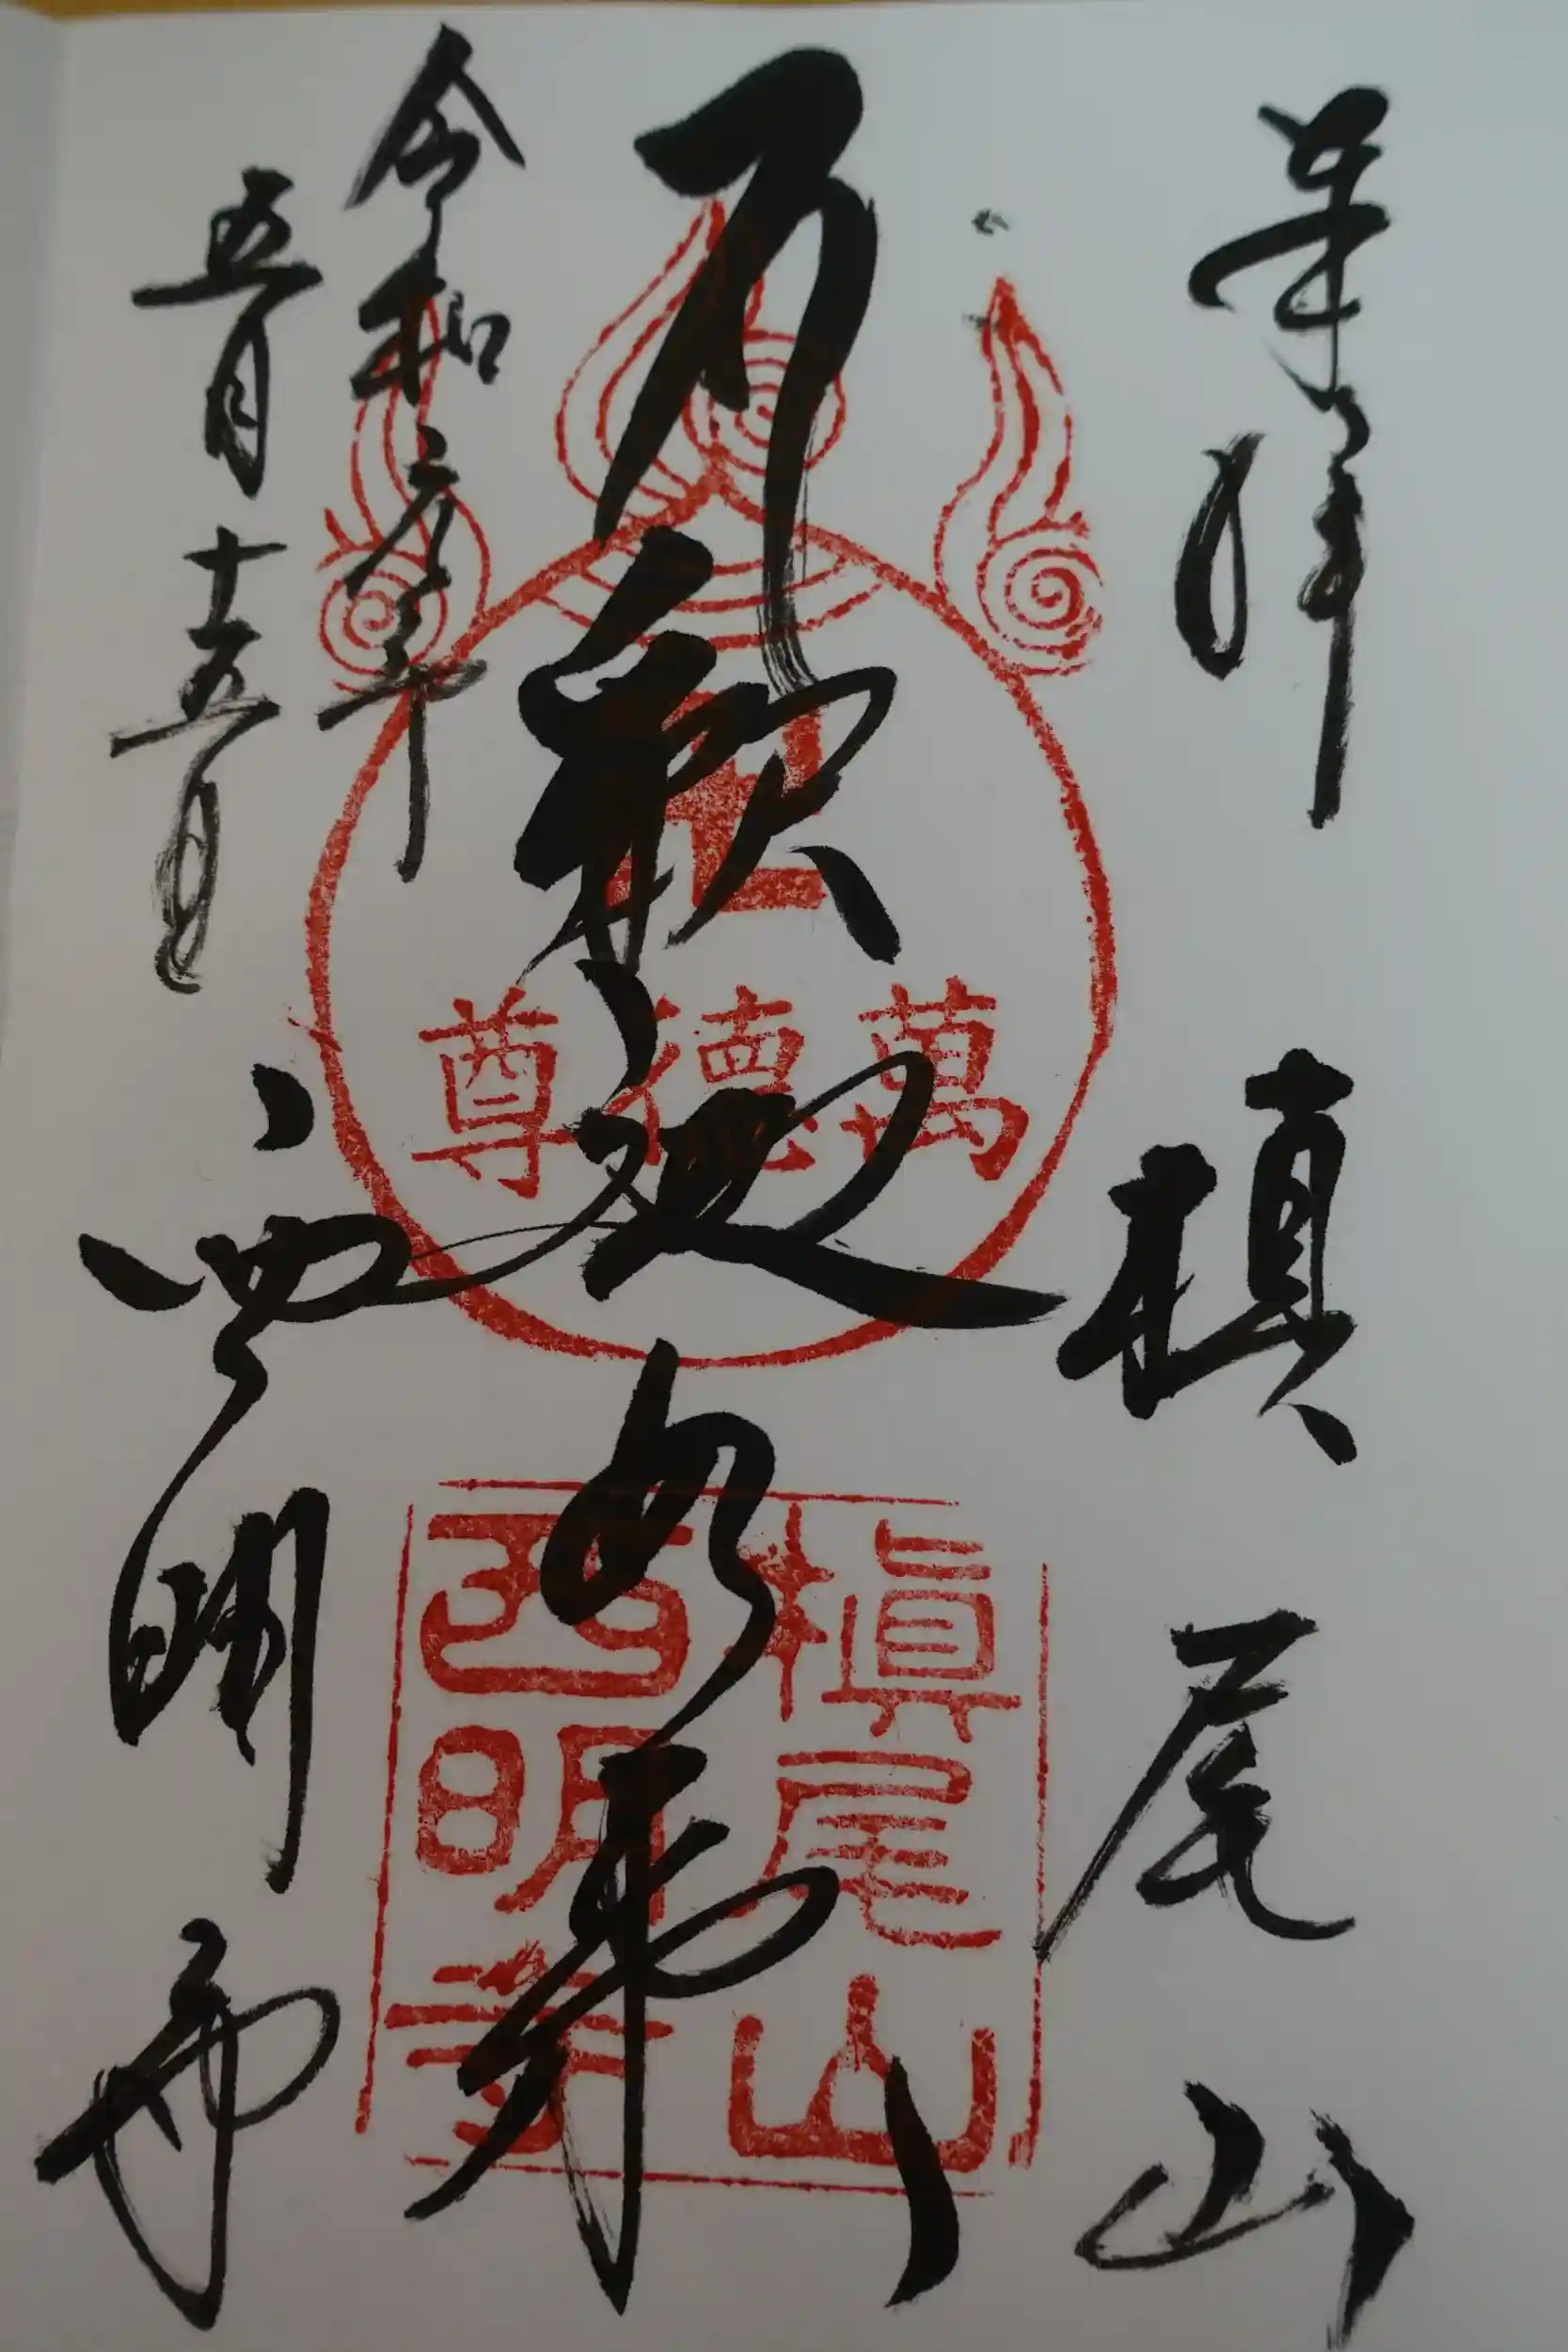 奉拝
槇尾山
釈迦如来
令和六年
五月十五日
西明寺
萬德尊
槇尾山
西明寺